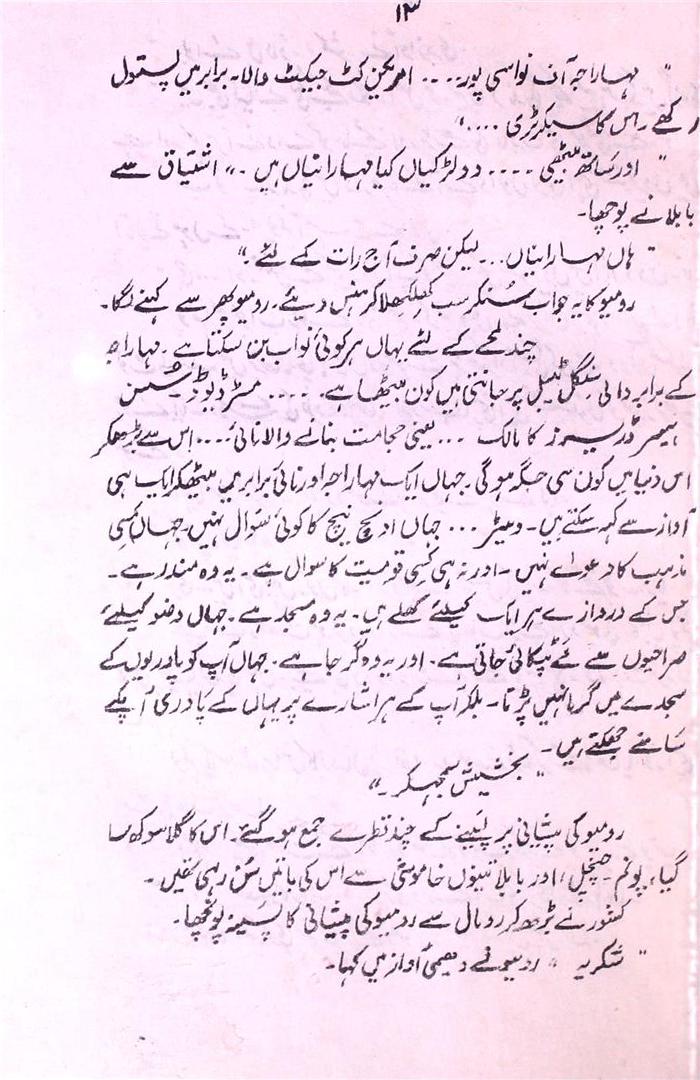 ۱۳
" مہاراجہ آف نواسی پور.... امریکن کٹ جیکٹ والا۔ برابر میں پستول
رکھے راس کا سیکرٹری ...."
" اور ساتھ بیٹھی .... دو لڑکیاں کیا مہارانیاں ہیں ۔" اشتیاق سے
بابلا نے پوچھا۔
" ہاں مہارانیاں... لیکن صرف آج رات کے لئے ۔"
رومیو کا یہ جواب سُنکر سب کھلکھلا کر ہنس دیئے۔ رومیو پھر سے کہنے لگا۔
چند لمحے کے لئے یہاں ہر کوئی نواب بن سکتا ہے ۔ مہاراجہ
کے برابر والی سنگل ٹیبل پر جانتی ہیں کون بیٹھا ہے .... مسٹر ڈیوڈ
ہیئر ڈریسرز کا مالک ... یعنی حجامت بنانے والا نائی.... اس سے بڑھکر
اس دنیا میں کون سی جگہ ہوگی۔ جہاں ایک مہاراجہ اور نائی برابر میں بیٹھکر ایک ہی
آواز سے کہہ سکتے ہیں۔ ویٹر ... جہاں اونچ نیچ کا کوئی سوال نہیں۔ جہاں کسی
مذہب کا دعوےٰ نہیں ۔ اور نہ ہی کسی قومیت کا سوال ہے ۔ یہ وہ مندر ہے ۔
جس کے دروازے ہر ایک کیلئے کھلے ہیں۔ یہ وہ مسجد ہے ۔ جہاں وضو کیلئے
صراحیوں سے مئے ٹپکائی جاتی ہے ۔ اور یہ وہ گرجا ہے ۔ جہاں آپ کو پادریوں کے
سجدے میں گرنا نہیں پڑتا ۔ بلکہ آپ کے ہر اشارے پر یہاں کے پادری آپکے
سامنے جھکتے ہیں ۔
" بخشیش سمجھکر ۔"
رومیو کی پیشانی پر پسینے کے چند قطرے جمع ہو گئے۔ اس کا گلا سوکھ سا
گیا، پونم۔ چنچل، اور بابلا تینوں خاموشی سے اس کی باتیں سُن رہی تھیں ۔
کشور نے بڑھ کر رومال سے رومیو کی پیشانی کا پسینہ پونچھا۔
" شکریہ " رومیو نے دھیمی آواز میں کہا۔